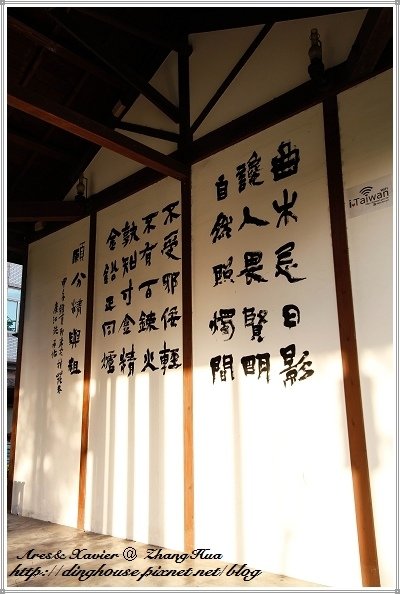 曲木忌日影
讒人畏賢明
自然照燭間
不受邪佞輕
不有百鍊火
孰知寸金精
金鉛正同爐
願分精與粗
iTaiwan
Ares & Xavier @ ZhangHua
http://dinghouse.pixnet.net/blog